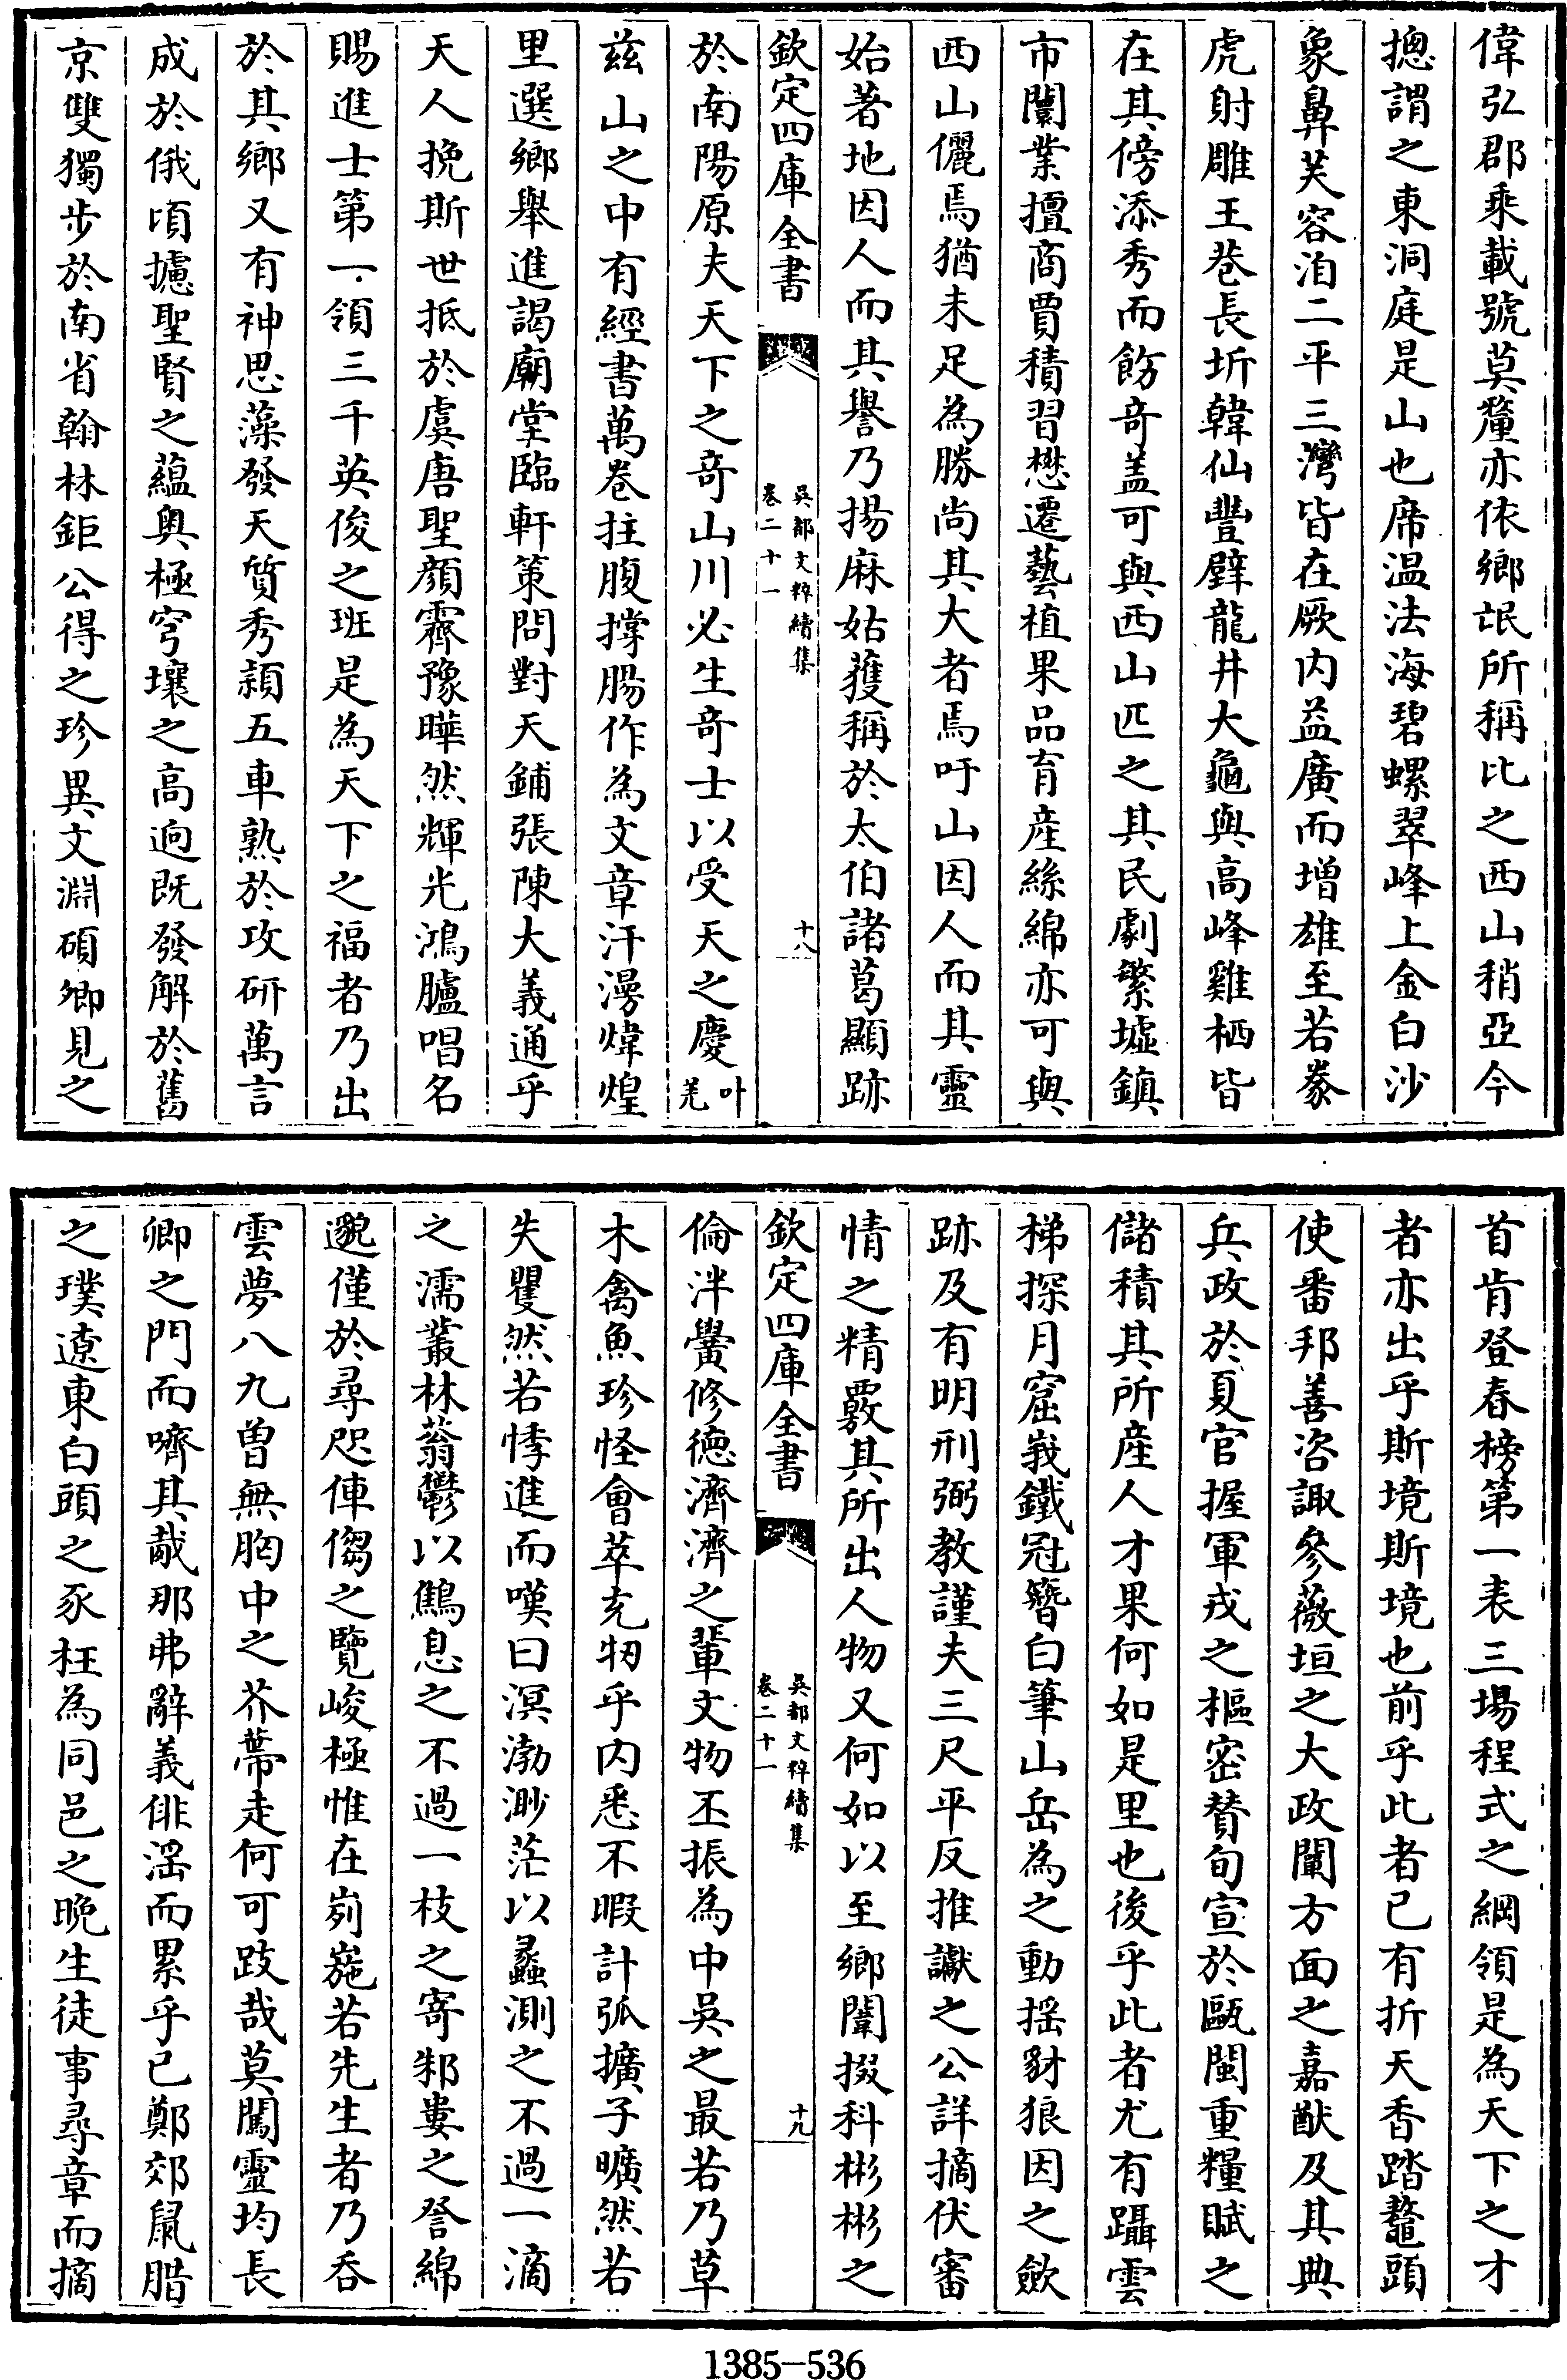 偉弘郡乘載號莫釐亦依鄉氓所稱比之西山稍亞今
摠謂之東洞庭是山也席温法海碧螺翠峰上金白沙
象鼻芙容洎二平三灣皆在厥内益廣而增雄至若豢
虎射雕王巷長圻韓仙豐壁龍井大龜與高峰雞栖皆
在其傍添秀而飭竒盖可與西山匹之其民劇繁墟鎮
市闤業擅商賈積習懋遷藝植果品育産絲綿亦可與
西山儷焉猶未足為勝尚其大者焉吁山因人而其靈
始著地因人而其譽乃揚麻姑獲稱於太伯諸葛顯跡
欽定四庫全書
吳都文粹續集
卷二十一
十八
於南陽原夫天下之竒山川必生竒士以受天之慶叶羌
兹山之中有經書萬卷拄腹撑腸作為文章汗漫煒煌
里選鄉舉進謁廟堂臨軒策問對天鋪張陳大義通乎
天人挽斯世抵於虞唐聖顔霽豫曄然輝光鴻臚唱名
賜進士第一領三千英俊之班是為天下之福者乃出
於其鄉又有神思藻發天質秀頴五車熟於攻研萬言
成於俄頃攄聖賢之蘊奥極穹壤之高逈既發解於舊
京雙獨步於南省翰林鉅公得之珍異文淵碩卿見之
首肯登春榜第一表三場程式之綱領是為天下之才
者亦出乎斯境斯境也前乎此者已有折天香踏鼇頭
使番邦善咨諏參薇垣之大政闡方面之嘉猷及其典
兵政於夏官握軍戎之樞密賛旬宣於甌閩重糧賦之
儲積其所産人才果何如是里也後乎此者尤有躡雲
梯探月窟峩鐵冠簪白筆山岳為之動摇豺狼因之歛
跡及有明刑弼教謹夫三尺平反推讞之公詳摘伏審
情之精覈其所出人物又何如以至鄉闈掇科彬彬之
欽定四庫全書
吳都文粹續集
卷二十一
十九
倫泮黌修徳濟濟之輩文物丕振為中吳之最若乃草
木禽魚珍怪會萃充牣乎内悉不暇計弧擴子曠然若
失瞿然若悸進而嘆曰溟渤渺茫以蠡測之不過一滴
之濡叢林蓊鬱以鷦息之不過一枝之寄邾婁之詧綿
邈僅於尋咫俥傟之覽峻極惟在峛崺若先生者乃吞
雲夢八九曽無胸中之芥蔕走何可跂哉莫闖靈均長
卿之門而嚌其胾那弗辭義俳滛而累乎已鄭郊鼠腊
之璞遼東白頭之豕枉為同邑之晩生徒事尋章而摘
1385—536